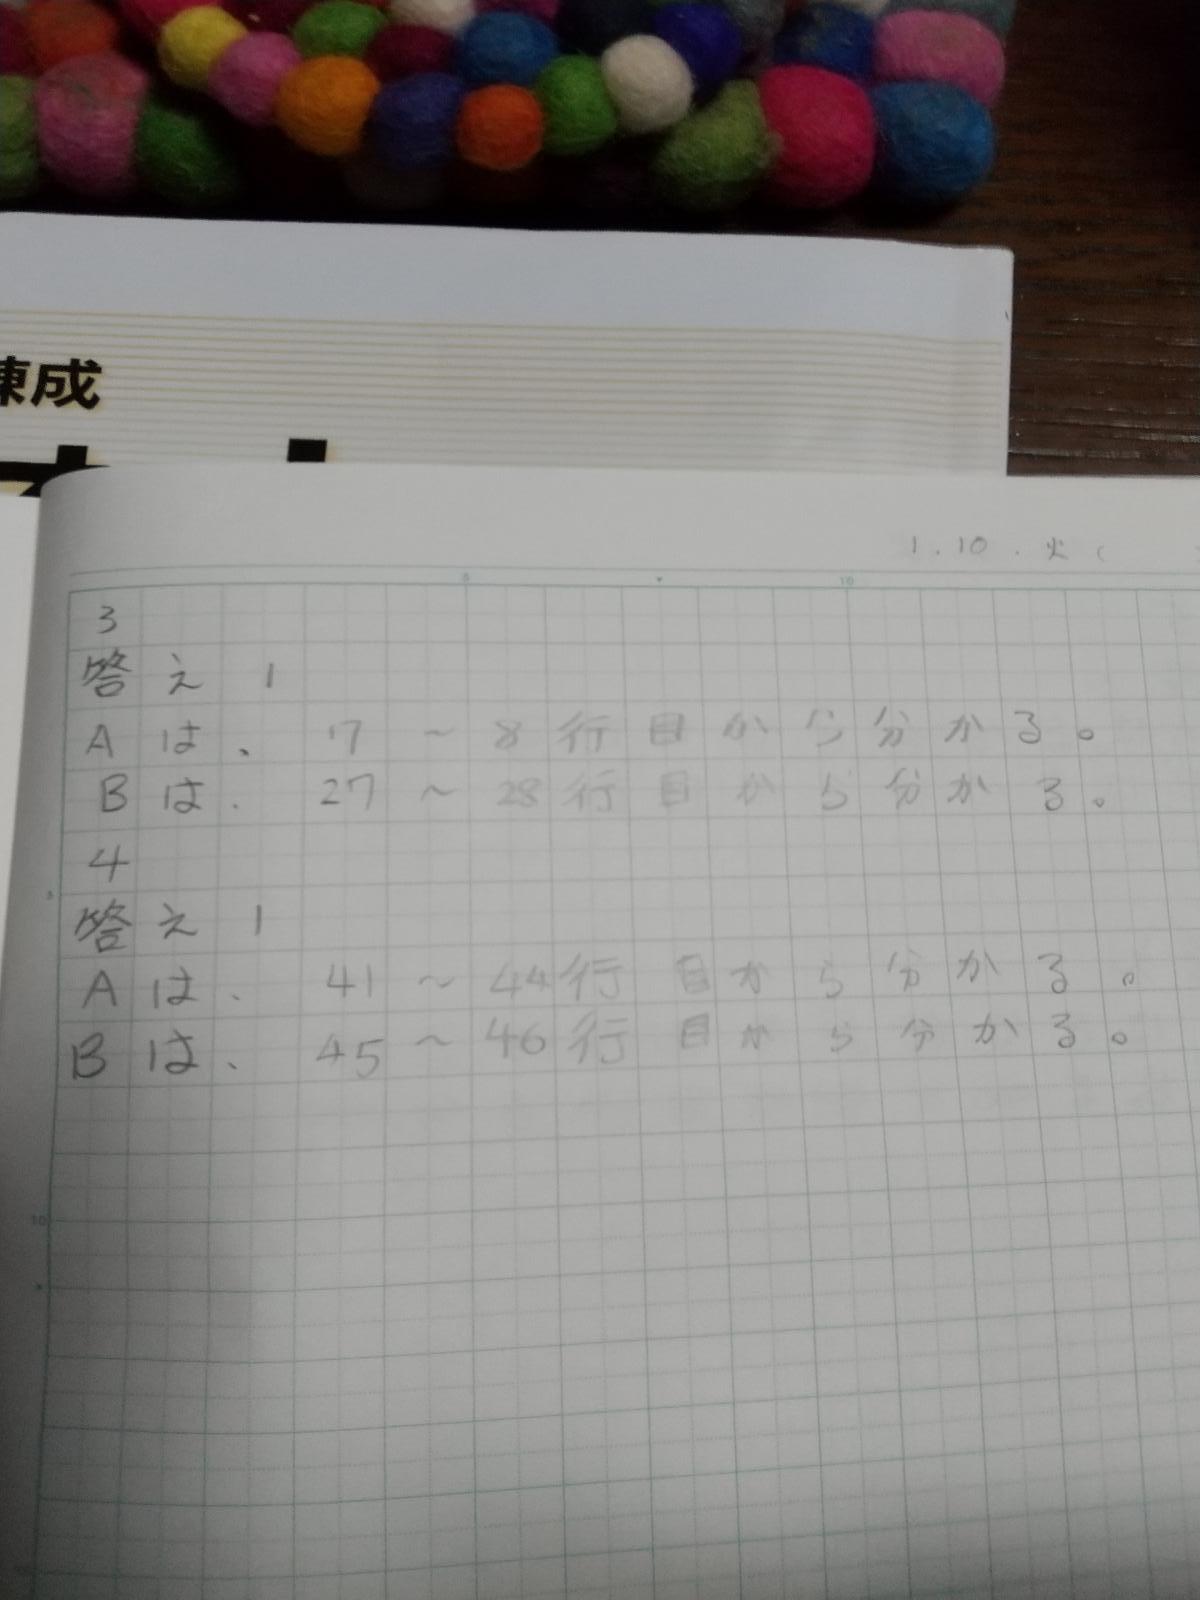 錬成
1.10.火(
3
答え1
Aは、7~8行目から分かる。
Bは、27~28行目から分かる。
4
答え1
Aは、41~44行目から分かる。
Bは、45~46行目から分かる。